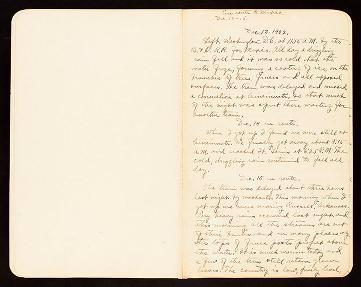 En route to Mexico.
Dec. 13-15.
Dec. 13, 1902.
Left Washington, D.C. at 11:50 A.M. by the
B. & O. R.R. for Mexico. All day a drizzling
rain fell and it was so cold that the
water froze, forming a coating of ice on the
branches of trees, fences and all exposed
surfaces. The train was delayed and missed
a connection at Cincinnati, so that much
of the night was spent there waiting for
another train.
Dec. 14 en route.
When I got up I found we were still at
Cincinnati. We finally got away about
A.M. and reached St. Louis at P.M. The
cold, drizzling rain continued to fall all
day.
Dec. 15 en route.
The train was delayed about three hours
last night by washouts. This morning when I
got up we were nearing Arkansas.
Very heavy rains occurred last night and
this morning all the streams are out
of their banks and in many places only
the tops of fence posts project above
the water. It is much warmer today and
a few of the trees still retain green
leaves. The country is low, fairly level,